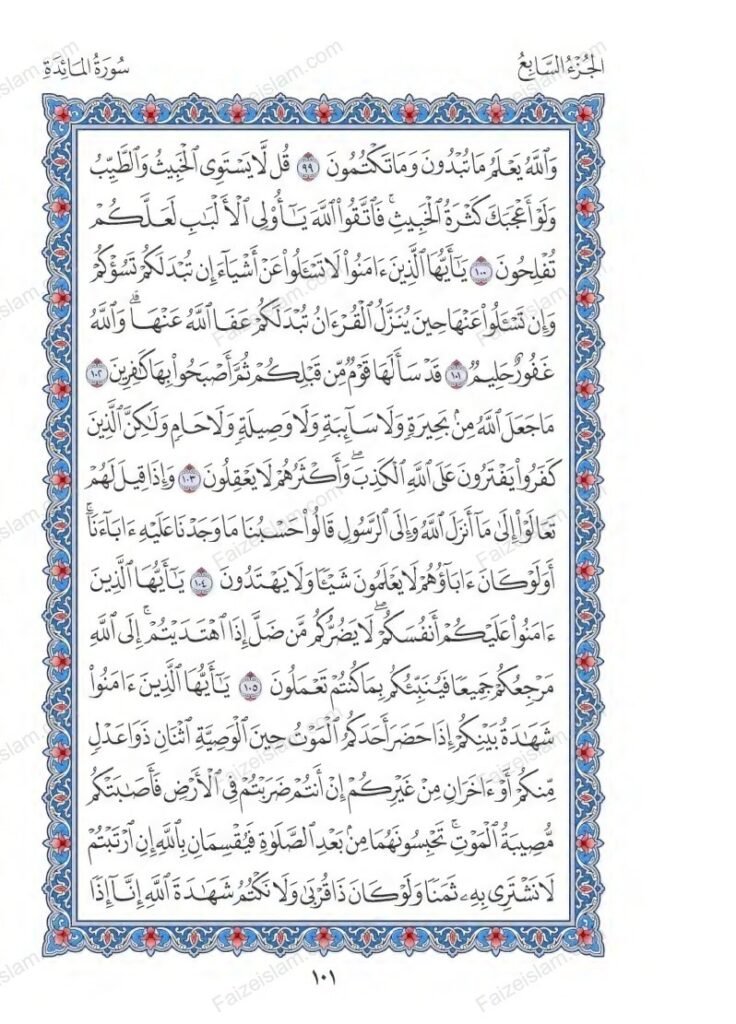 الجُزْءُ السَّابِعُ
سُورَةُ المَائِدَةِ
وَٱللَّهُ يَعْلَمُ مَا تُبْدُونَ وَمَا تَكْتُمُونَ ٩٩ قُل لَّا يَسْتَوِى ٱلْخَبِيثُ وَٱلطَّيِّبُ
وَلَوْ أَعْجَبَكَ كَثْرَةُ ٱلْخَبِيثِ ۚ فَٱتَّقُوا۟ ٱللَّهَ يَـٰٓأُو۟لِى ٱلْأَلْبَـٰبِ لَعَلَّكُمْ
تُفْلِحُونَ ١٠٠ يَـٰٓأَيُّهَا ٱلَّذِينَ ءَامَنُوا۟ لَا تَسْـَٔلُوا۟ عَنْ أَشْيَآءَ إِن تُبْدَ لَكُمْ تَسُؤْكُمْ
وَإِن تَسْـَٔلُوا۟ عَنْهَا حِينَ يُنَزَّلُ ٱلْقُرْءَانُ تُبْدَ لَكُمْ عَفَا ٱللَّهُ عَنْهَا ۗ وَٱللَّهُ
غَفُورٌ حَلِيمٌ ١٠١ قَدْ سَأَلَهَا قَوْمٌ مِّن قَبْلِكُمْ ثُمَّ أَصْبَحُوا۟ بِهَا كَـٰفِرِينَ ١٠٢
مَا جَعَلَ ٱللَّهُ مِنۢ بَحِيرَةٍ وَلَا سَآئِبَةٍ وَلَا وَصِيلَةٍ وَلَا حَامٍ وَلَـٰكِنَّ ٱلَّذِينَ
كَفَرُوا۟ يَفْتَرُونَ عَلَى ٱللَّهِ ٱلْكَذِبَ ۖ وَأَكْثَرُهُمْ لَا يَعْقِلُونَ ١٠٣ وَإِذَا قِيلَ لَهُمْ
تَعَالَوْا۟ إِلَىٰ مَآ أَنزَلَ ٱللَّهُ وَإِلَى ٱلرَّسُولِ قَالُوا۟ حَسْبُنَا مَا وَجَدْنَا عَلَيْهِ ءَابَآءَنَآ ۚ
أَوَلَوْ كَانَ ءَابَآؤُهُمْ لَا يَعْلَمُونَ شَيْـًٔا وَلَا يَهْتَدُونَ ١٠٤ يَـٰٓأَيُّهَا ٱلَّذِينَ
ءَامَنُوا۟ عَلَيْكُمْ أَنفُسَكُمْ ۖ لَا يَضُرُّكُم مَّن ضَلَّ إِذَا ٱهْتَدَيْتُمْ ۚ إِلَى ٱللَّهِ
مَرْجِعُكُمْ جَمِيعًا فَيُنَبِّئُكُم بِمَا كُنتُمْ تَعْمَلُونَ ١٠٥ يَـٰٓأَيُّهَا ٱلَّذِينَ ءَامَنُوا۟
شَهَـٰدَةُ بَيْنِكُمْ إِذَا حَضَرَ أَحَدَكُمُ ٱلْمَوْتُ حِينَ ٱلْوَصِيَّةِ ٱثْنَانِ ذَوَا عَدْلٍ
مِّنكُمْ أَوْ ءَاخَرَانِ مِنْ غَيْرِكُمْ إِنْ أَنتُمْ ضَرَبْتُمْ فِى ٱلْأَرْضِ فَأَصَـٰبَتْكُم
مُّصِيبَةُ ٱلْمَوْتِ ۚ تَحْبِسُونَهُمَا مِنۢ بَعْدِ ٱلصَّلَوٰةِ فَيُقْسِمَانِ بِٱللَّهِ إِنِ ٱرْتَبْتُمْ
لَا نَشْتَرِى بِهِۦ ثَمَنًا وَلَوْ كَانَ ذَا قُرْبَىٰ وَلَا نَكْتُمُ شَهَـٰدَةَ ٱللَّهِ إِنَّآ إِذًا
١٠١
Faizeislam.com